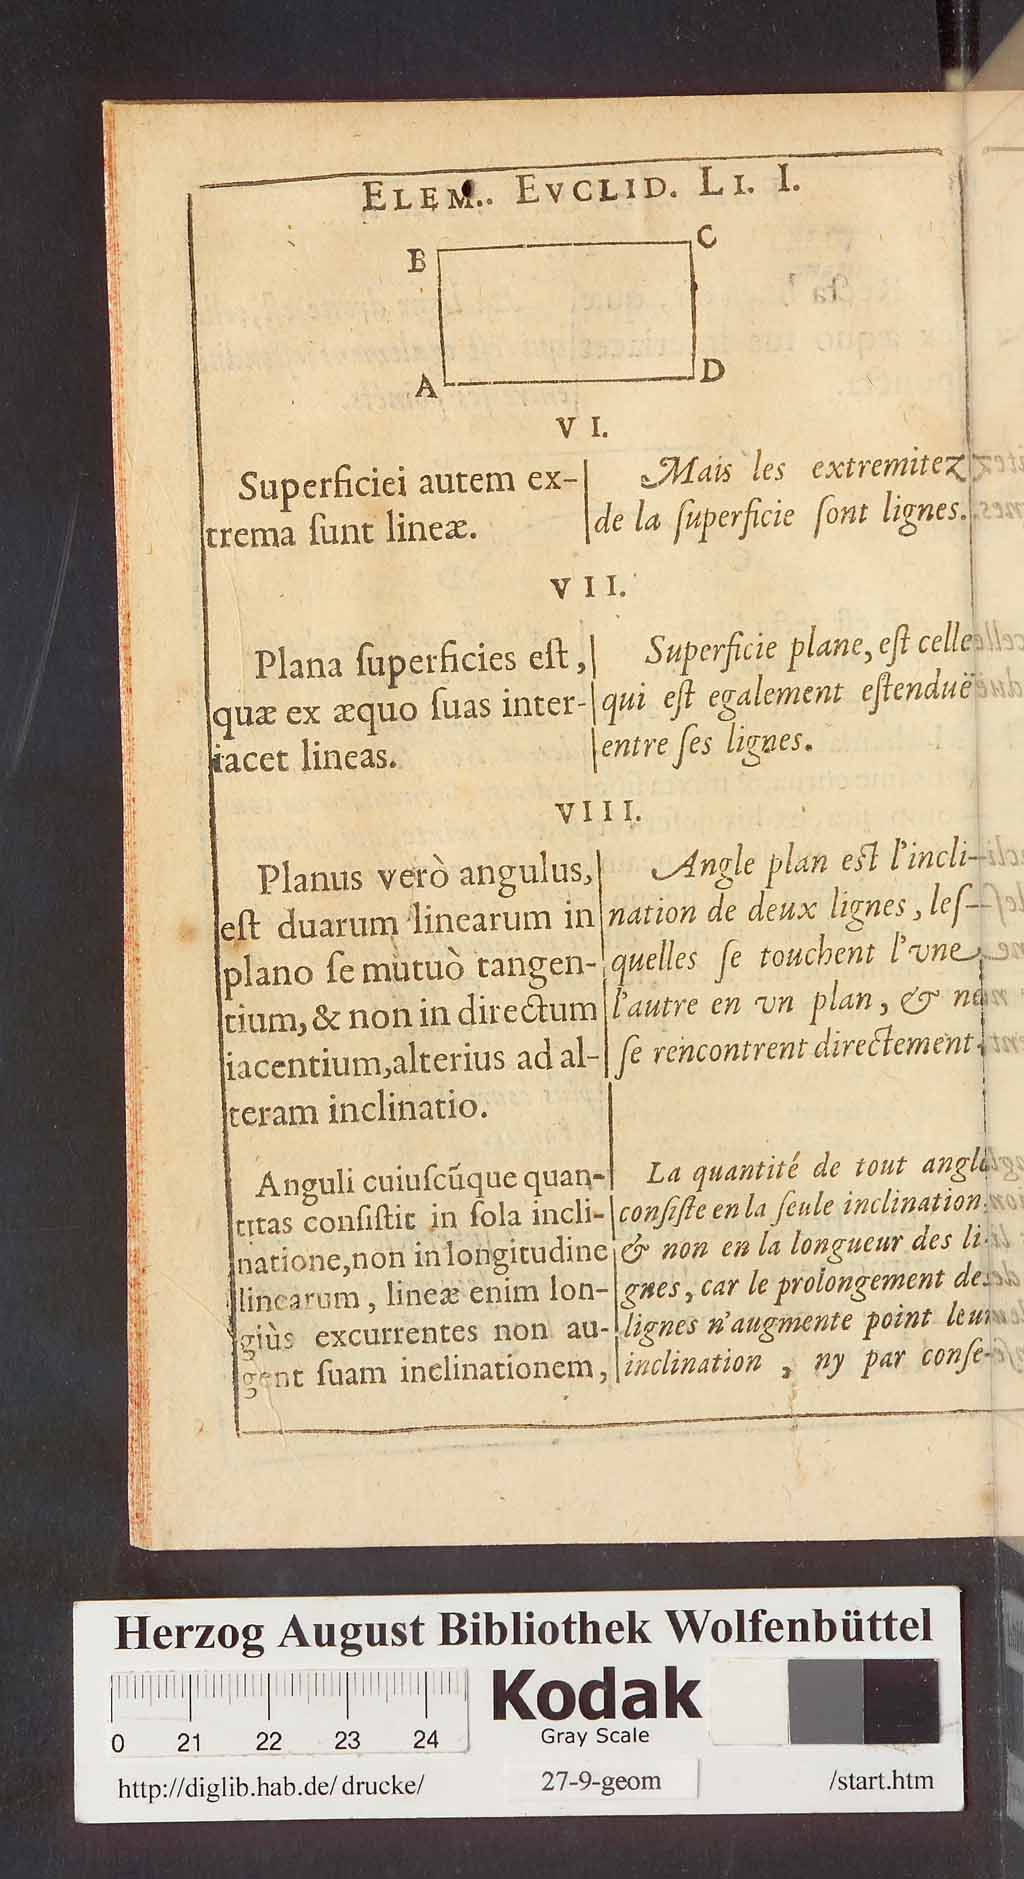 ELEM.. EVCLID. LI. I.
B
C
A
D
VI.
Superficiei autem ex-
trema ſunt lineæ.
Mais les extremitez
de la ſuperficie ſont lignes.
VII.
Plana ſuperficies eſt,
quæ ex æquo ſuas inter-
iacet lineas.
Superficie plane, eſt celle
qui eſt egalement eſtenduë
entre ſes lignes.
VIII.
Planus verò angulus,
eſt duarum linearum in
plano ſe mutuò tangen-
tium, & non in directum
iacentium, alterius ad al-
teram inclinatio.
Angle plan eſt l'incli-
nation de deux lignes, leſ-
quelles ſe touchent l'vne
l'autre en vn plan, & ne
ſe rencontrent directement.
Anguli cuiuſcũque quan-
titas conſiſtit in ſola incli-
natione, non in longitudine
linearum, lineæ enim lon-
giùs excurrentes non au-
gent ſuam inclinationem,
La quantité de tout angle
conſiſte en la ſeule inclination
& non en la longueur des li-
gnes, car le prolongement des
lignes n'augmente point leur
inclination, ny par conſe-
Herzog August Bibliothek Wolfenbüttel
Kodak
Gray Scale
0 21 22 23 24
http://diglib.hab.de/drucke/ 27-9-geom /start.htm